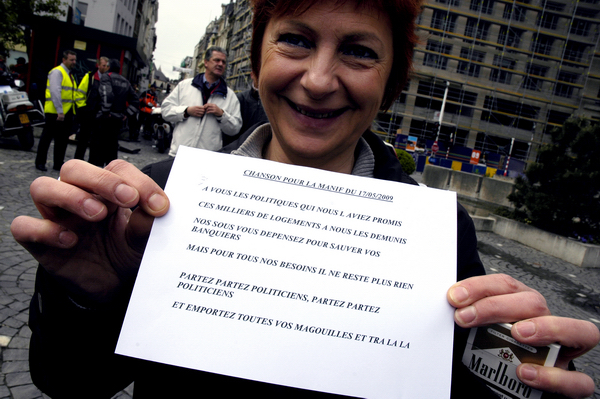 CHANSON POUR LA MANIF DU 17/05/2009
A VOUS LES POLITIQUES QUI NOUS L AVIEZ PROMIS
CES MILLIERS DE LOGEMENTS A NOUS LES DEMUNIS
NOS SOUS VOUS DEPENSEZ POUR SAUVER VOS
BANQUIERS
MAIS POUR TOUS NOS BESOINS IL NE RESTE PLUS RIEN
PARTEZ PARTEZ POLITICIENS, PARTEZ PARTEZ
POLITICIENS
ET EMPORTEZ TOUTES VOS MAGOUILLES ET TRA LA LA
Marlboro